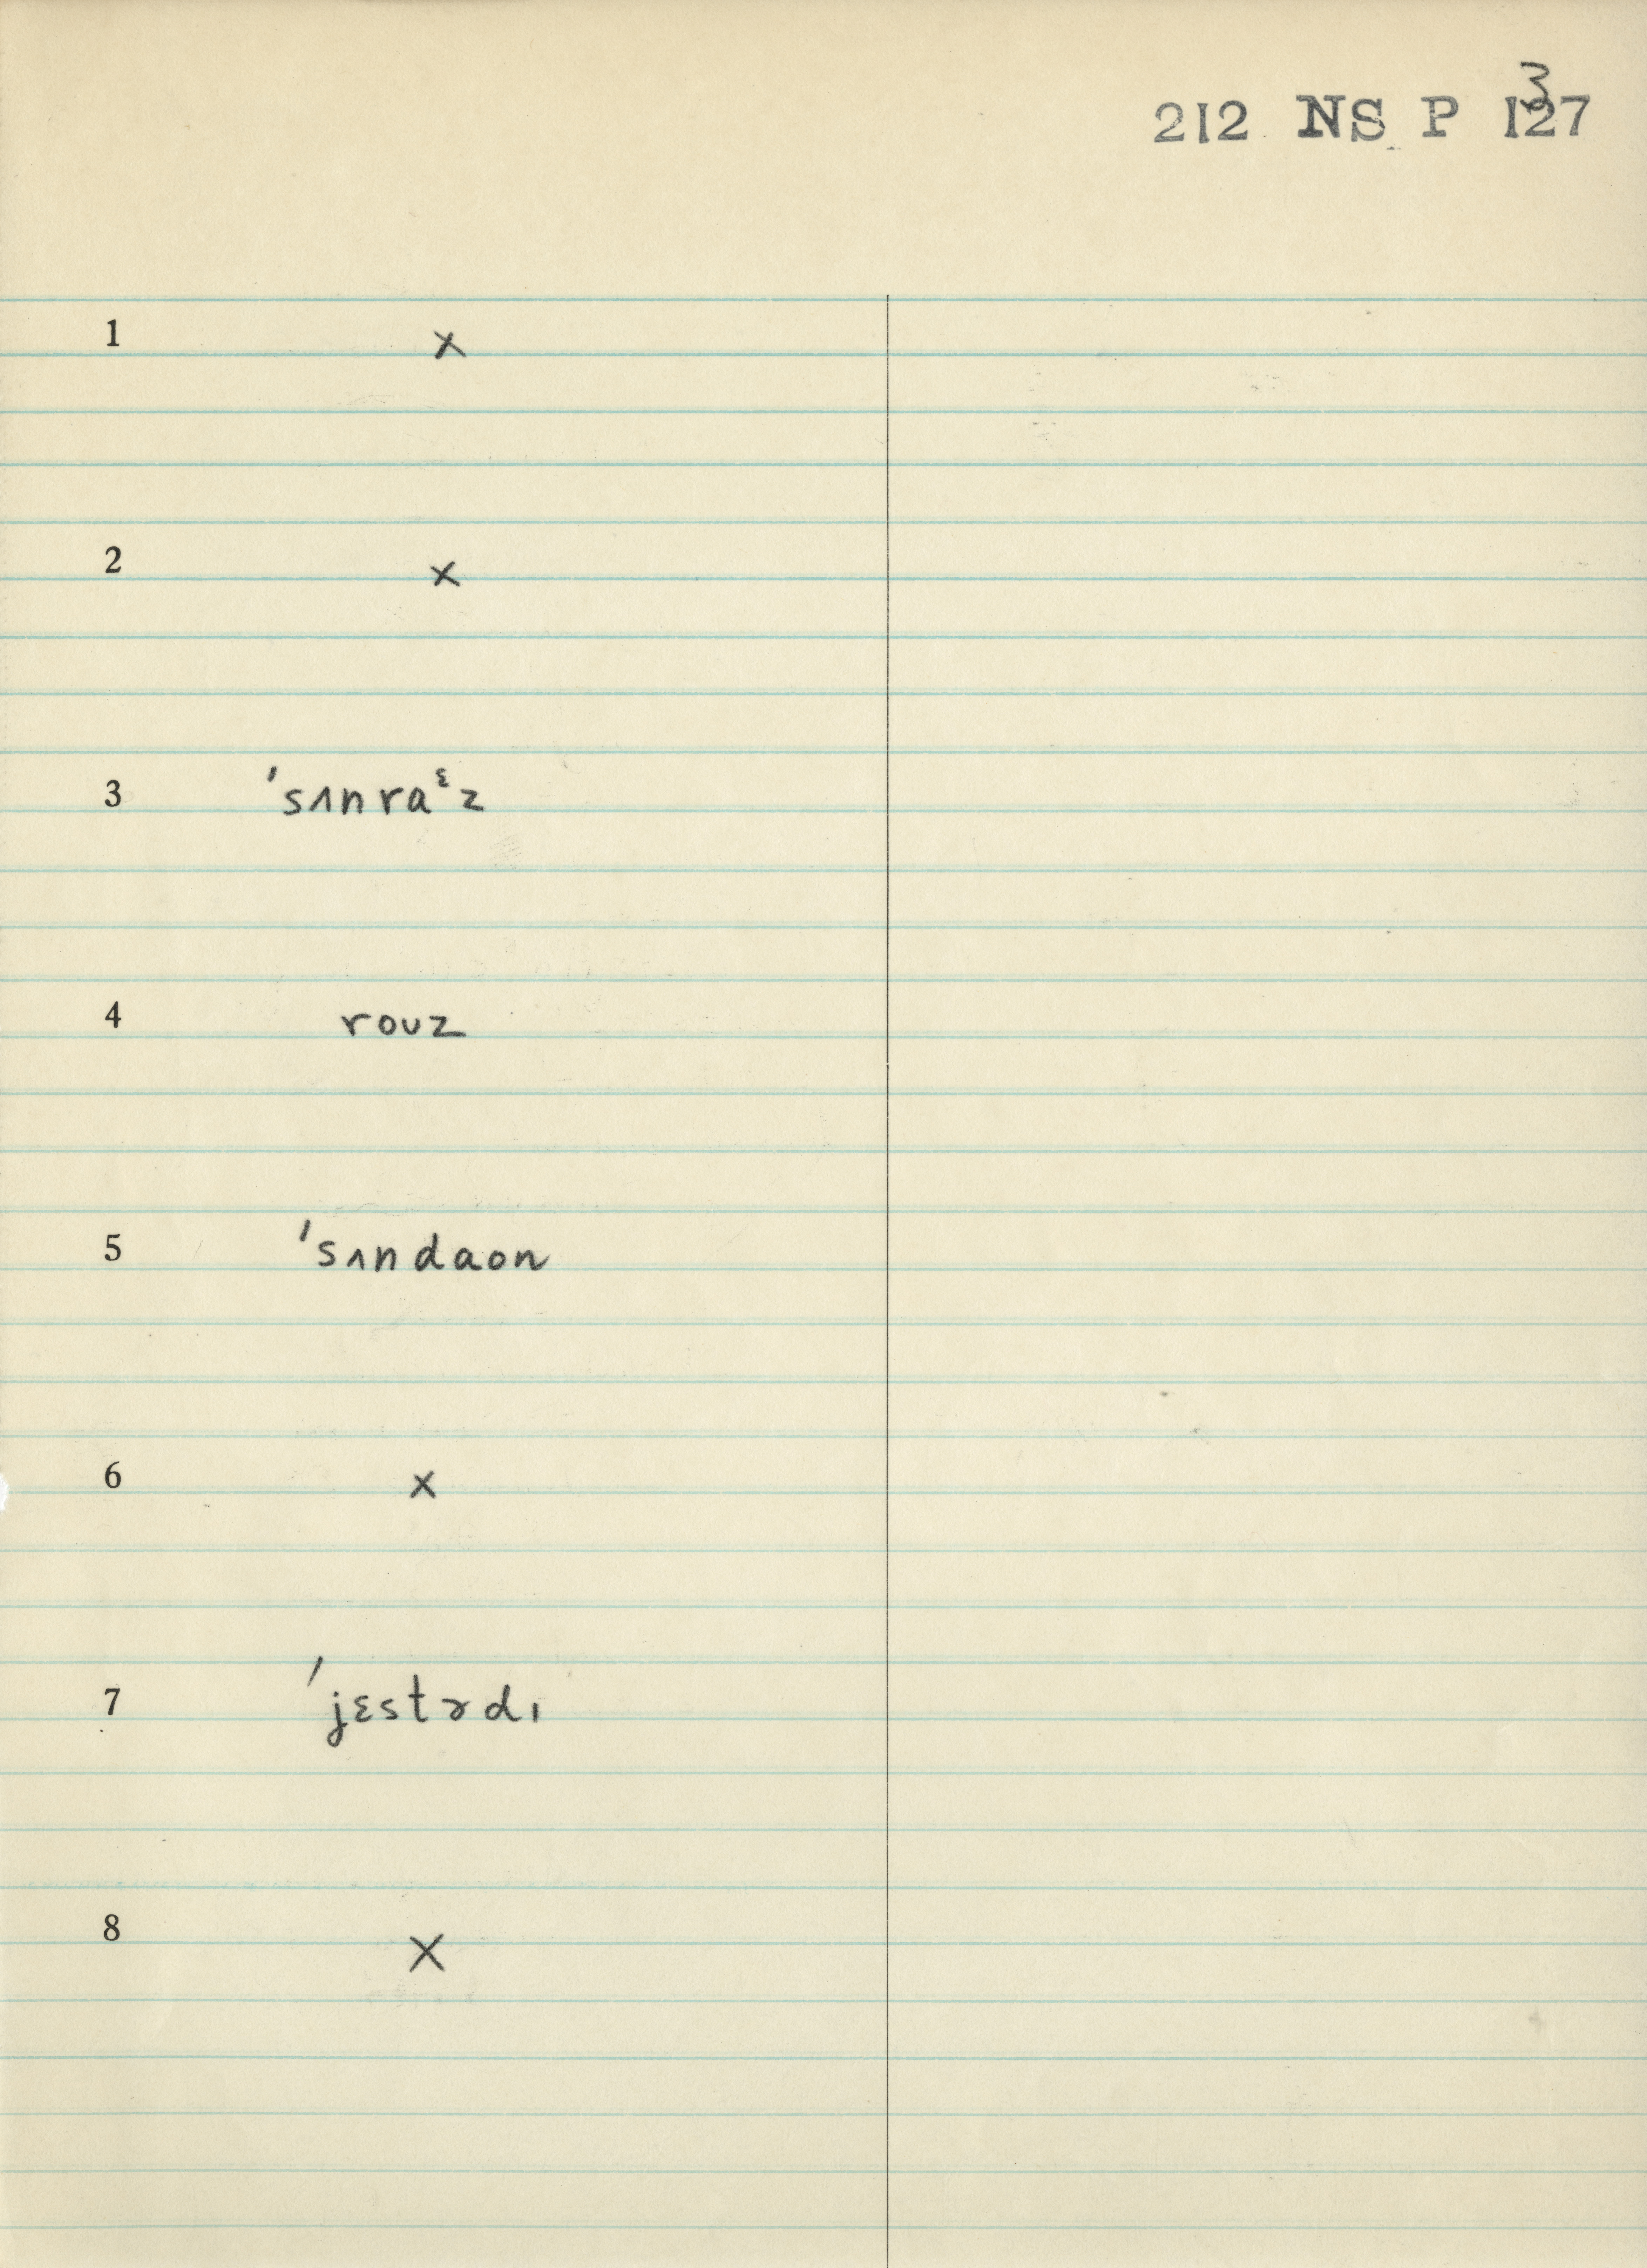 212 NS P 127
3
1 x
2 x
3 ˈsʌnraᵋz
4 rouz
5 ˈsʌndaon
6 x
7 ˈjɛstɚdɪ
8 X